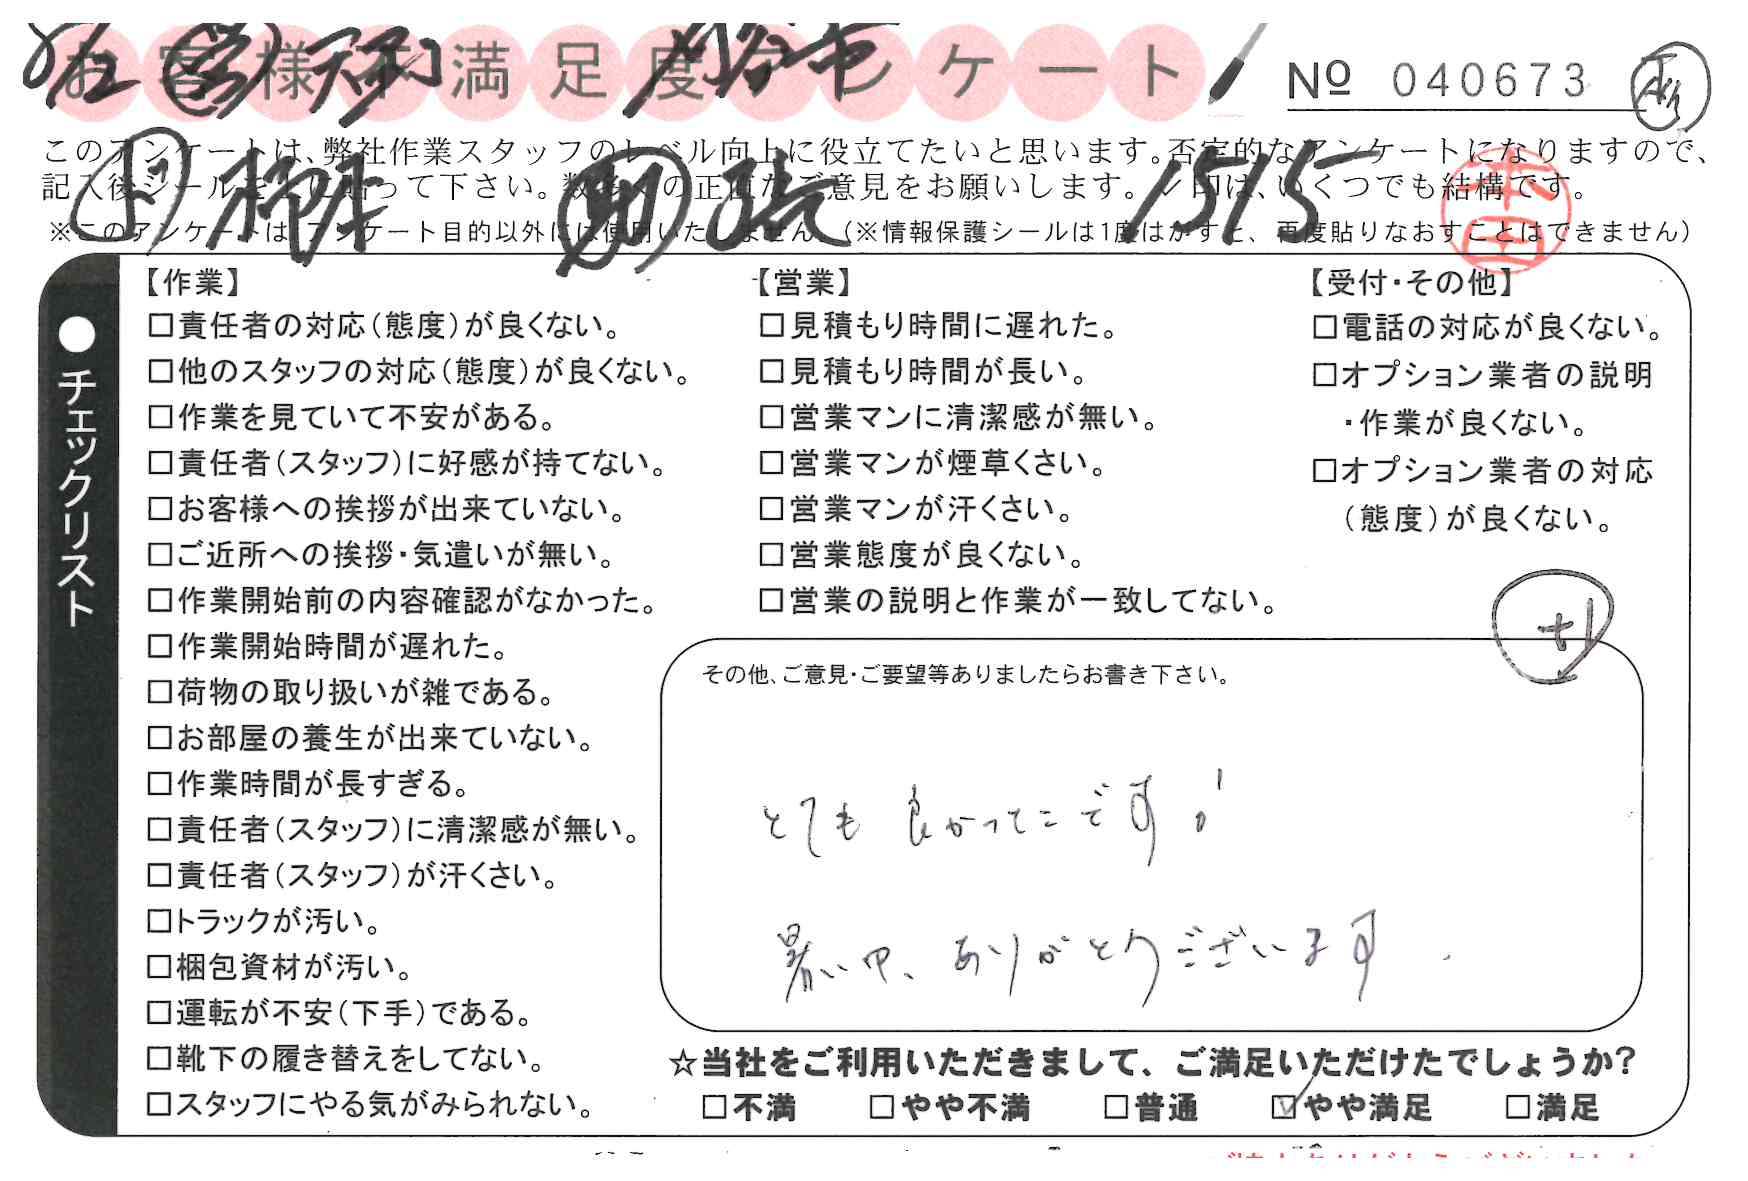 お客様不満足度アンケート
№ 040673
このアンケートは、弊社作業スタッフのレベル向上に役立てたいと思います。否定的なアンケートになりますので、
記入後シールを上に貼って下さい。数多くの正直なご意見をお願いします。✓印は、いくつでも結構です。
1515
本田
※このアンケートは、アンケート目的以外には使用いたしません。(※情報保護シールは1度はがすと、再度貼りなおすことはできません)
●チェックリスト
【作業】
□責任者の対応(態度)が良くない。
□他のスタッフの対応(態度)が良くない。
□作業を見ていて不安がある。
□責任者(スタッフ)に好感が持てない。
□お客様への挨拶が出来ていない。
□ご近所への挨拶・気遣いが無い。
□作業開始前の内容確認がなかった。
□作業開始時間が遅れた。
□荷物の取り扱いが雑である。
□お部屋の養生が出来ていない。
□作業時間が長すぎる。
□責任者(スタッフ)に清潔感が無い。
□責任者(スタッフ)が汗くさい。
□トラックが汚い。
□梱包資材が汚い。
□運転が不安(下手)である。
□靴下の履き替えをしてない。
□スタッフにやる気がみられない。
【営業】
□見積もり時間に遅れた。
□見積もり時間が長い。
□営業マンに清潔感が無い。
□営業マンが煙草くさい。
□営業マンが汗くさい。
□営業態度が良くない。
□営業の説明と作業が一致してない。
【受付・その他】
□電話の対応が良くない。
□オプション業者の説明
・作業が良くない。
□オプション業者の対応
(態度)が良くない。
その他、ご意見・ご要望等ありましたらお書き下さい。
とても良かったです!
暑い中、ありがとうございます.
☆当社をご利用いただきまして、ご満足いただけたでしょうか?
□不満 □やや不満 □普通 ☑やや満足 □満足